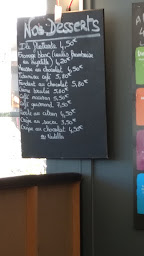 Nos Desserts
Ile flottante 4,50€
Fromage blanc (coulis Framboise
ou Myrtille) 4,20€
Mousse au chocolat 4,50€
Tiramisu café 5,80€
Fondant au chocolat 5,80€
Crème brulée 5,80€
Café maison 5,50€
Café gourmand 7,50€
Tarte au citron 4,50€
Crêpe au sucre 3,50€
Crêpe au chocolat 4,50€
ou Nutella